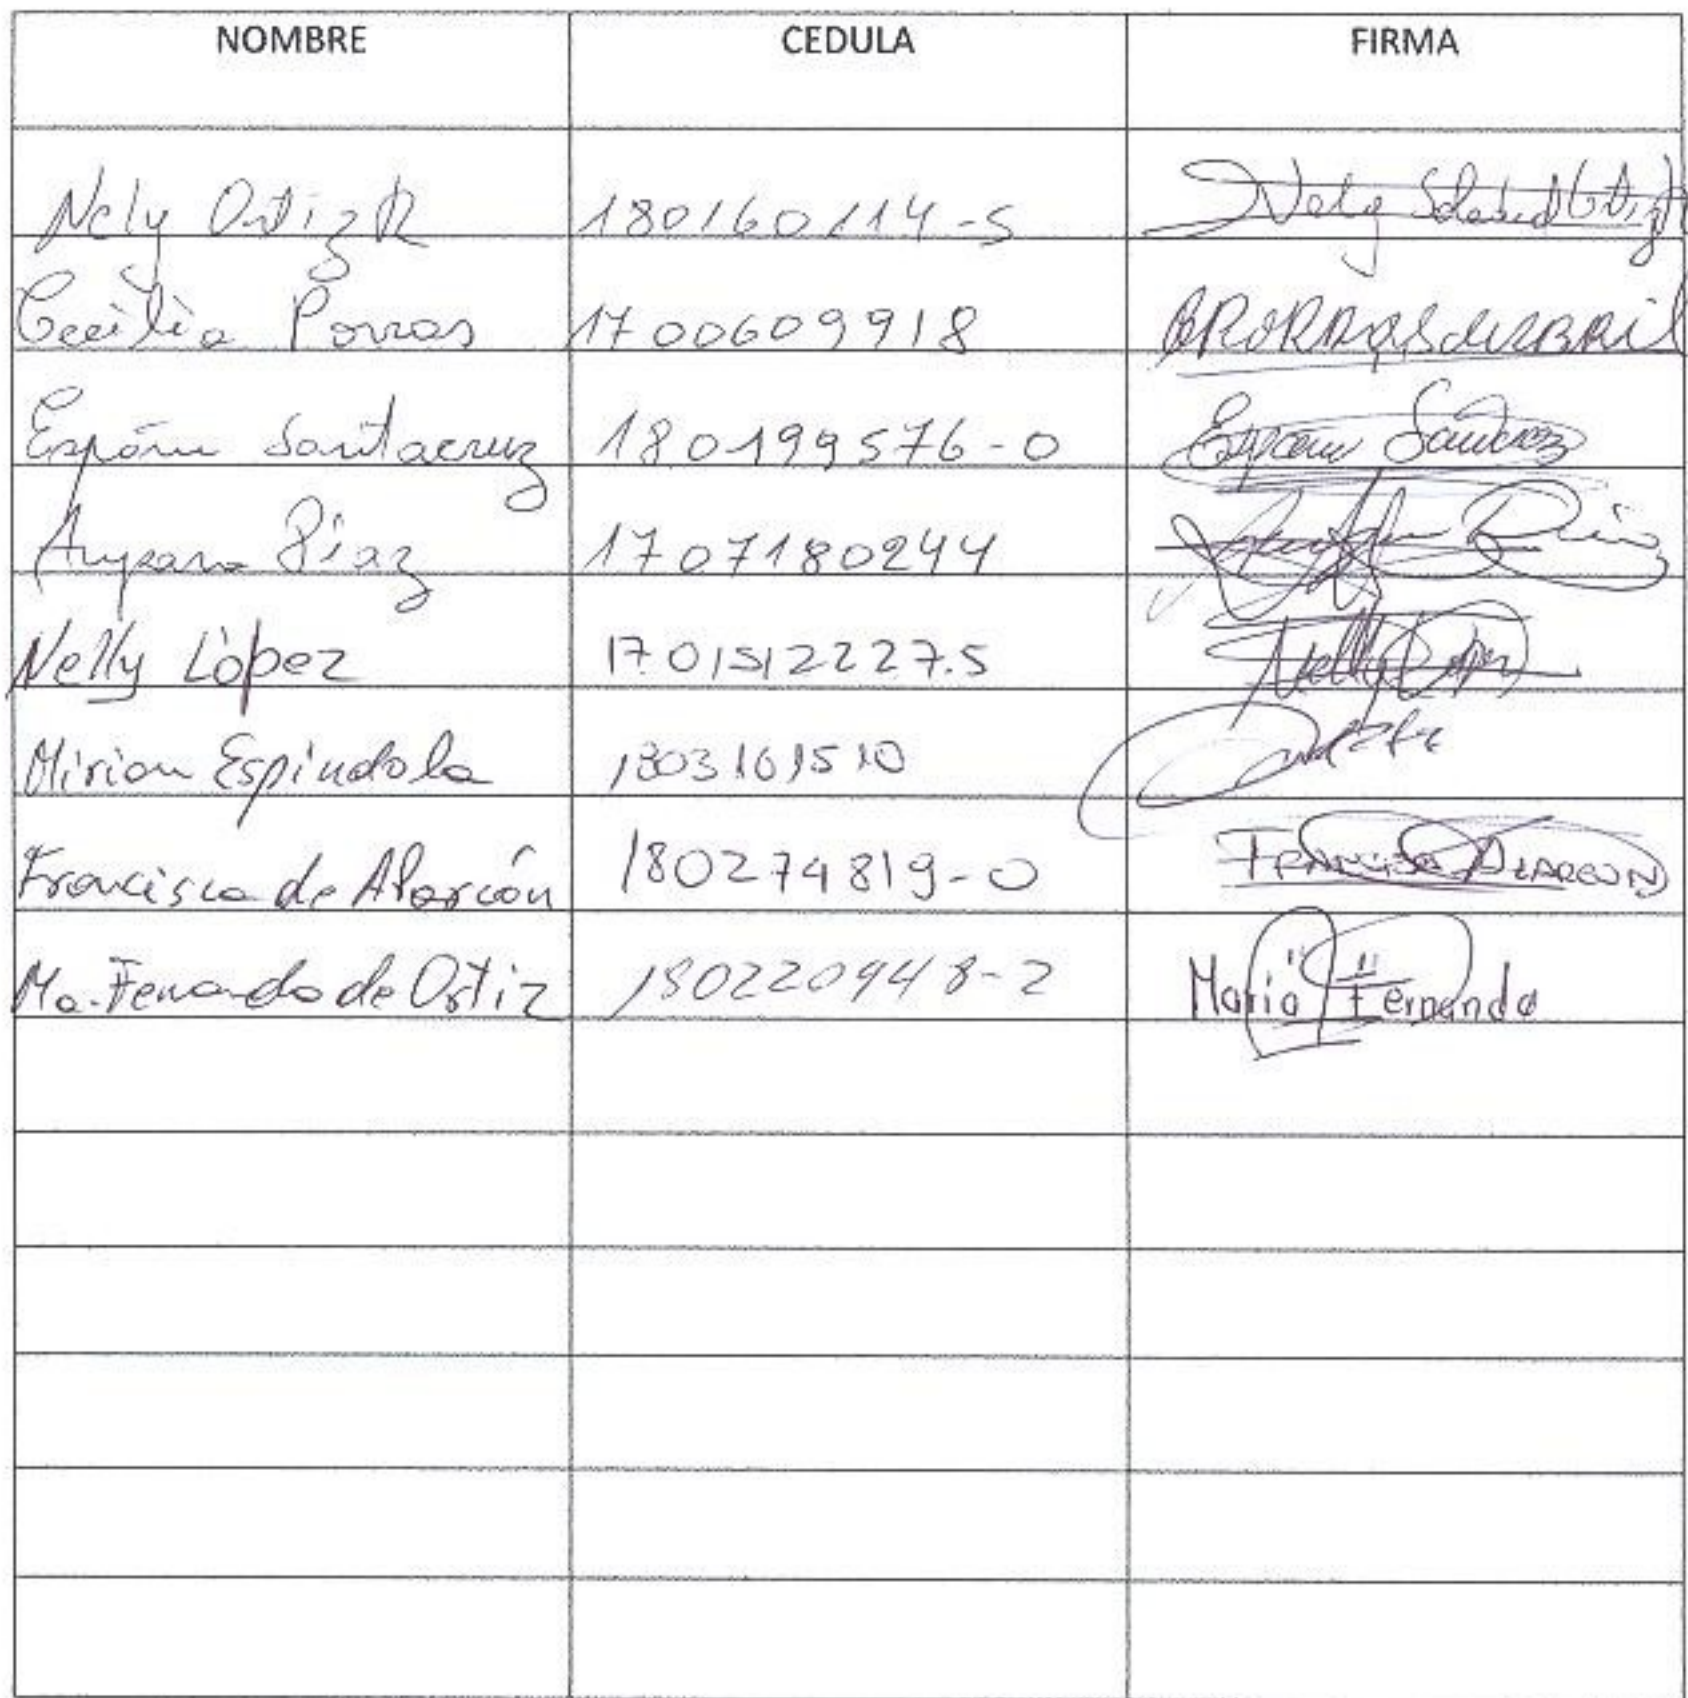 NOMBRE CEDULA FIRMA
Nely Ortiz R 180160114-5 Nely Ortiz R
Cecilia Porras 1700609918
Santacruz 180199576-0
Díaz 1707180244 Díaz
Nelly López 1701512227.5 Nelly López
Mirian Espindola 1803161510
Francisca de Alarcón 180274819-0 Francisca Alarcon
Ma. Fernanda de Ortiz 180220948-2 María "Fernanda"